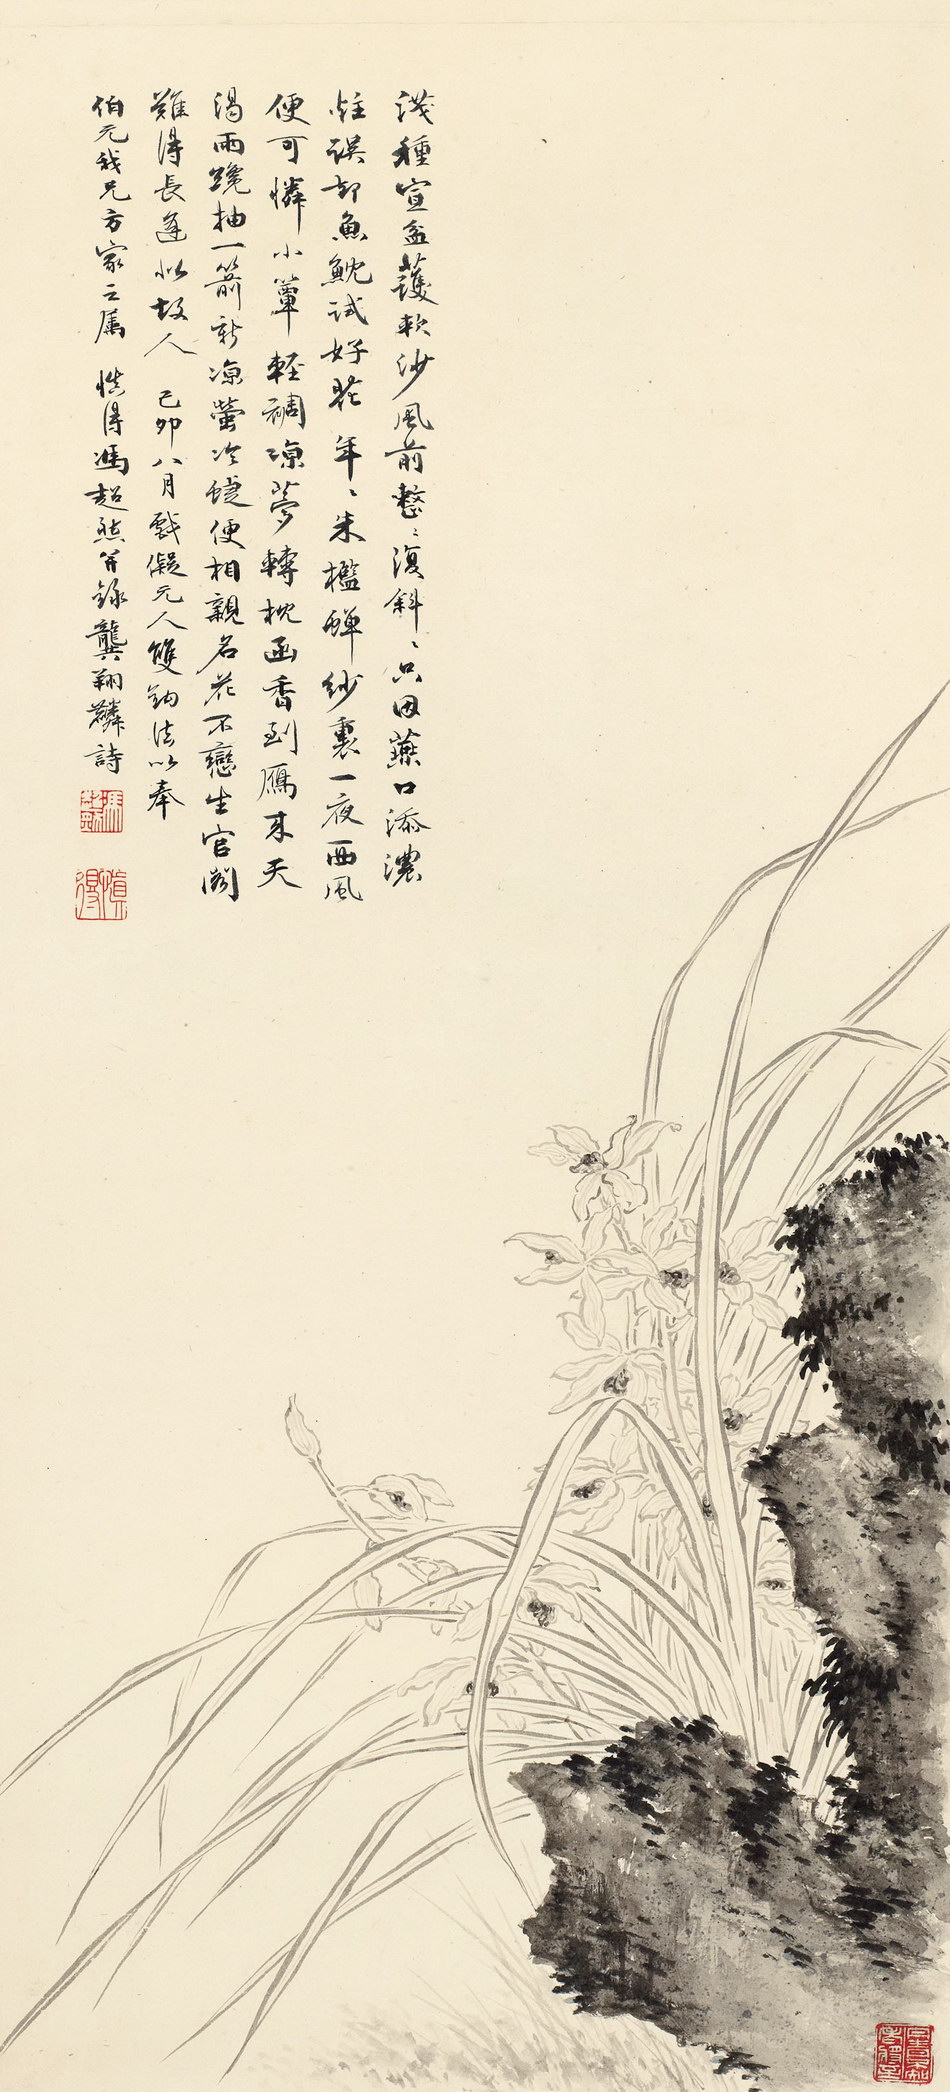 淺種宣盆護軟沙風前整〻復斜〻只因藥口添濃
娃誤却魚魫試好花年〻朱檻蟬紗裏一夜西風
便可憐小簟輕裯涼夢轉枕函香到雁來天
渴雨纔抽一箭新涼螢冷蜨便相親名花不戀生官閣
難得長逢似故人 己卯八月戲儗元人雙鈎法以奉
伯元我兄方家之屬 慎得馮超然並錄龔翔麟詩
慎得